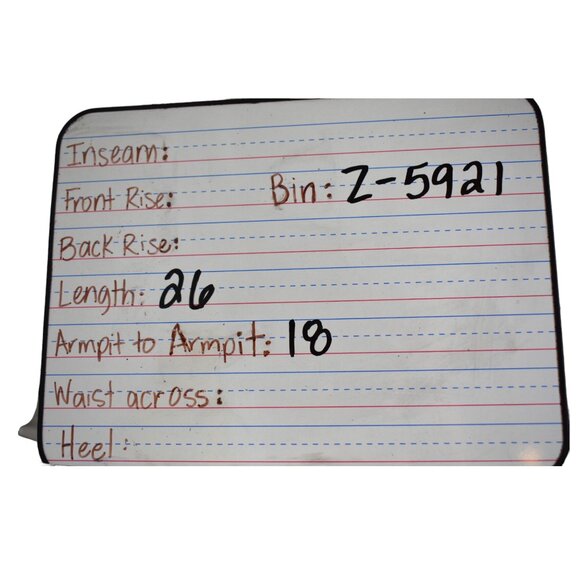 Inseam:
Front Rise:
Bin: Z-5921
Back Rise:
Length: 26
Armpit to Armpit: 18
Waist across:
Heel: